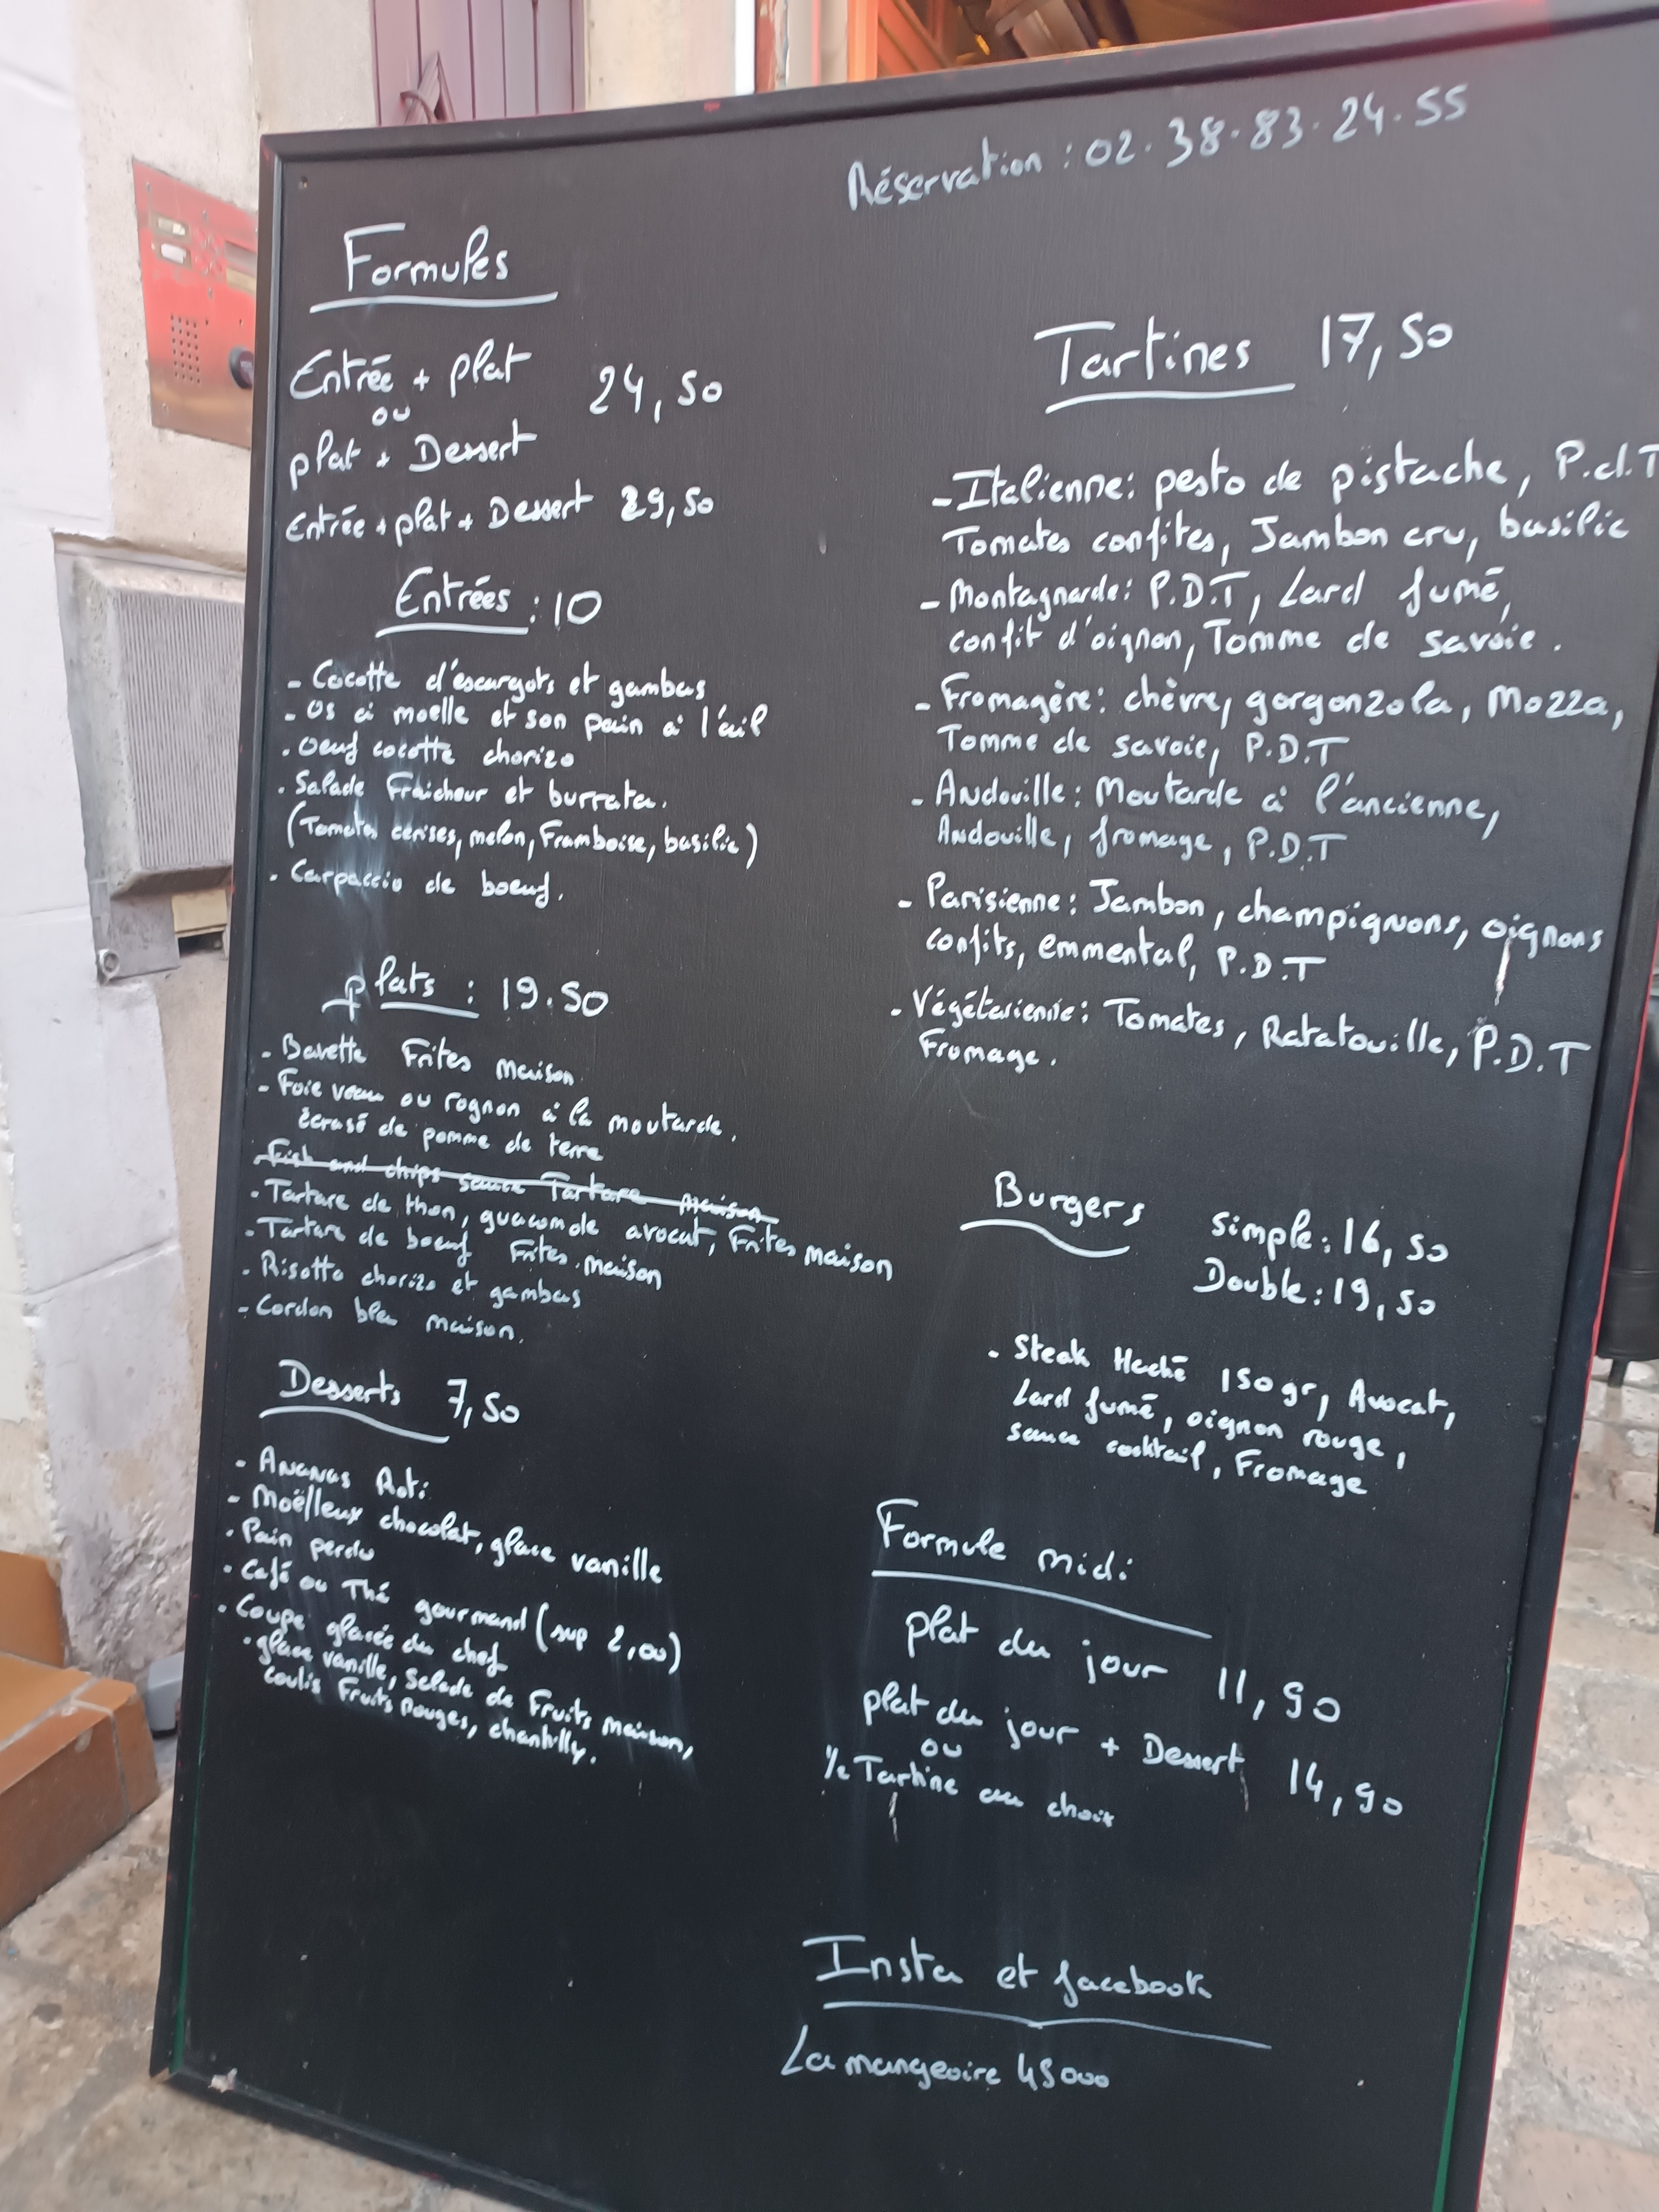 Réservation : 02.38.83.24.55
Formules
Entrée + plat
ou
24,50
plat + Dessert
Entrée + plat + Dessert 29,50
Entrées : 10
- Cocotte d'escargots et gambas
- Os à moelle et son pain à l'ail
. Oeuf cocotte chorizo
. Salade Fraicheur et burrata.
(Tomates cerises, melon, Framboise, basilic)
. Carpaccio de boeuf.
plats : 19.50
- Bavette Frites maison
- Foie veau ou rognon à la moutarde.
écrasé de pomme de terre
- Fish and chips sauce Tartare maison
. Tartare de thon, guacamole avocat, Frites maison
- Tartare de boeuf Frites maison
. Risotto chorizo et gambas
- Cordon bleu maison.
Desserts 7,50
- Ananas Roti
- Moëlleux chocolat, glace vanille
. Pain perdu
. Café ou Thé gourmand (sup 2,00)
. Coupe glacée du chef
. glace vanille, Salade de Fruits maison,
coulis Fruits Rouges, chantilly.
Tartines 17,50
- Italienne : pesto de pistache, P.d.T
Tomates confites, Jambon cru, basilic
- Montagnarde : P.D.T, Lard fumé,
confit d'oignon, Tomme de savoie.
- Fromagère : chèvre, gorgonzola, Mozza,
Tomme de savoie, P.D.T
- Andouille : Moutarde à l'ancienne,
Andouille, fromage, P.D.T
- Parisienne : Jambon, champignons, oignons
confits, emmental, P.D.T
- Végétarienne : Tomates, Ratatouille, P.D.T
Fromage.
Burgers simple : 16,50
Double : 19,50
- Steak Haché 150gr, Avocat,
Lard fumé, oignon rouge,
sauce cocktail, Fromage
Formule midi
plat du jour 11,90
plat du jour + Dessert 14,90
ou
1/2 Tartine au choix
Insta et facebook
La mangeoire 45000